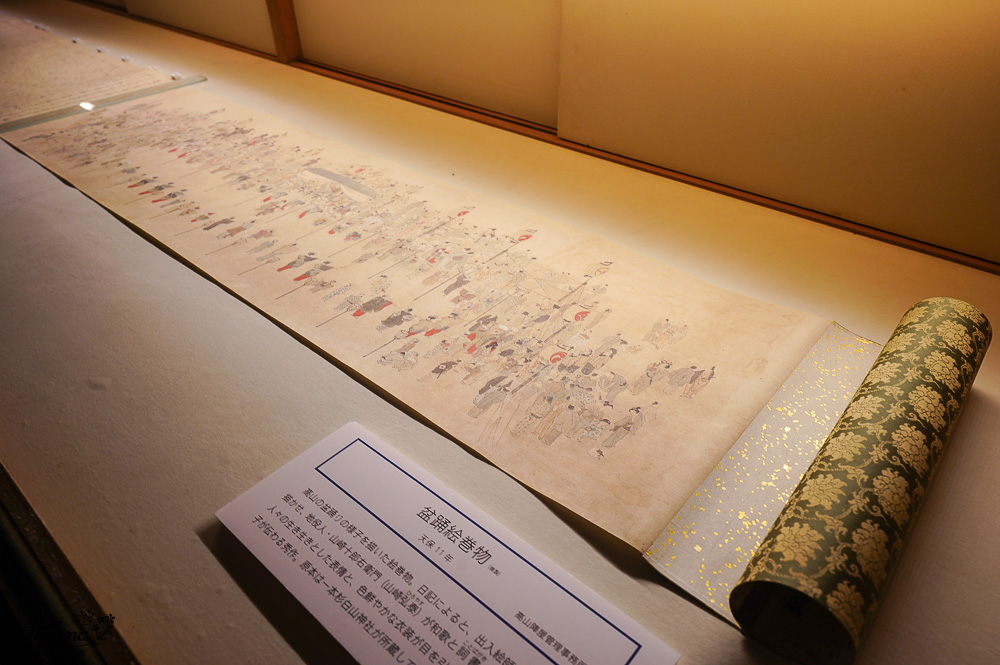 盆踊絵巻物（複製）
天保11年
高山陣屋管理事務所
高山の盆踊りの様子を描いた絵巻物。日記によると、出入絵師
描かせ、地役人・山崎十郎右衛門（山崎弘泰）が和歌と詞書
人々の生き生きとした表情と、色鮮やかな衣装が目を引
子が伝わる秀作。原本は一本杉白山神社が所蔵して